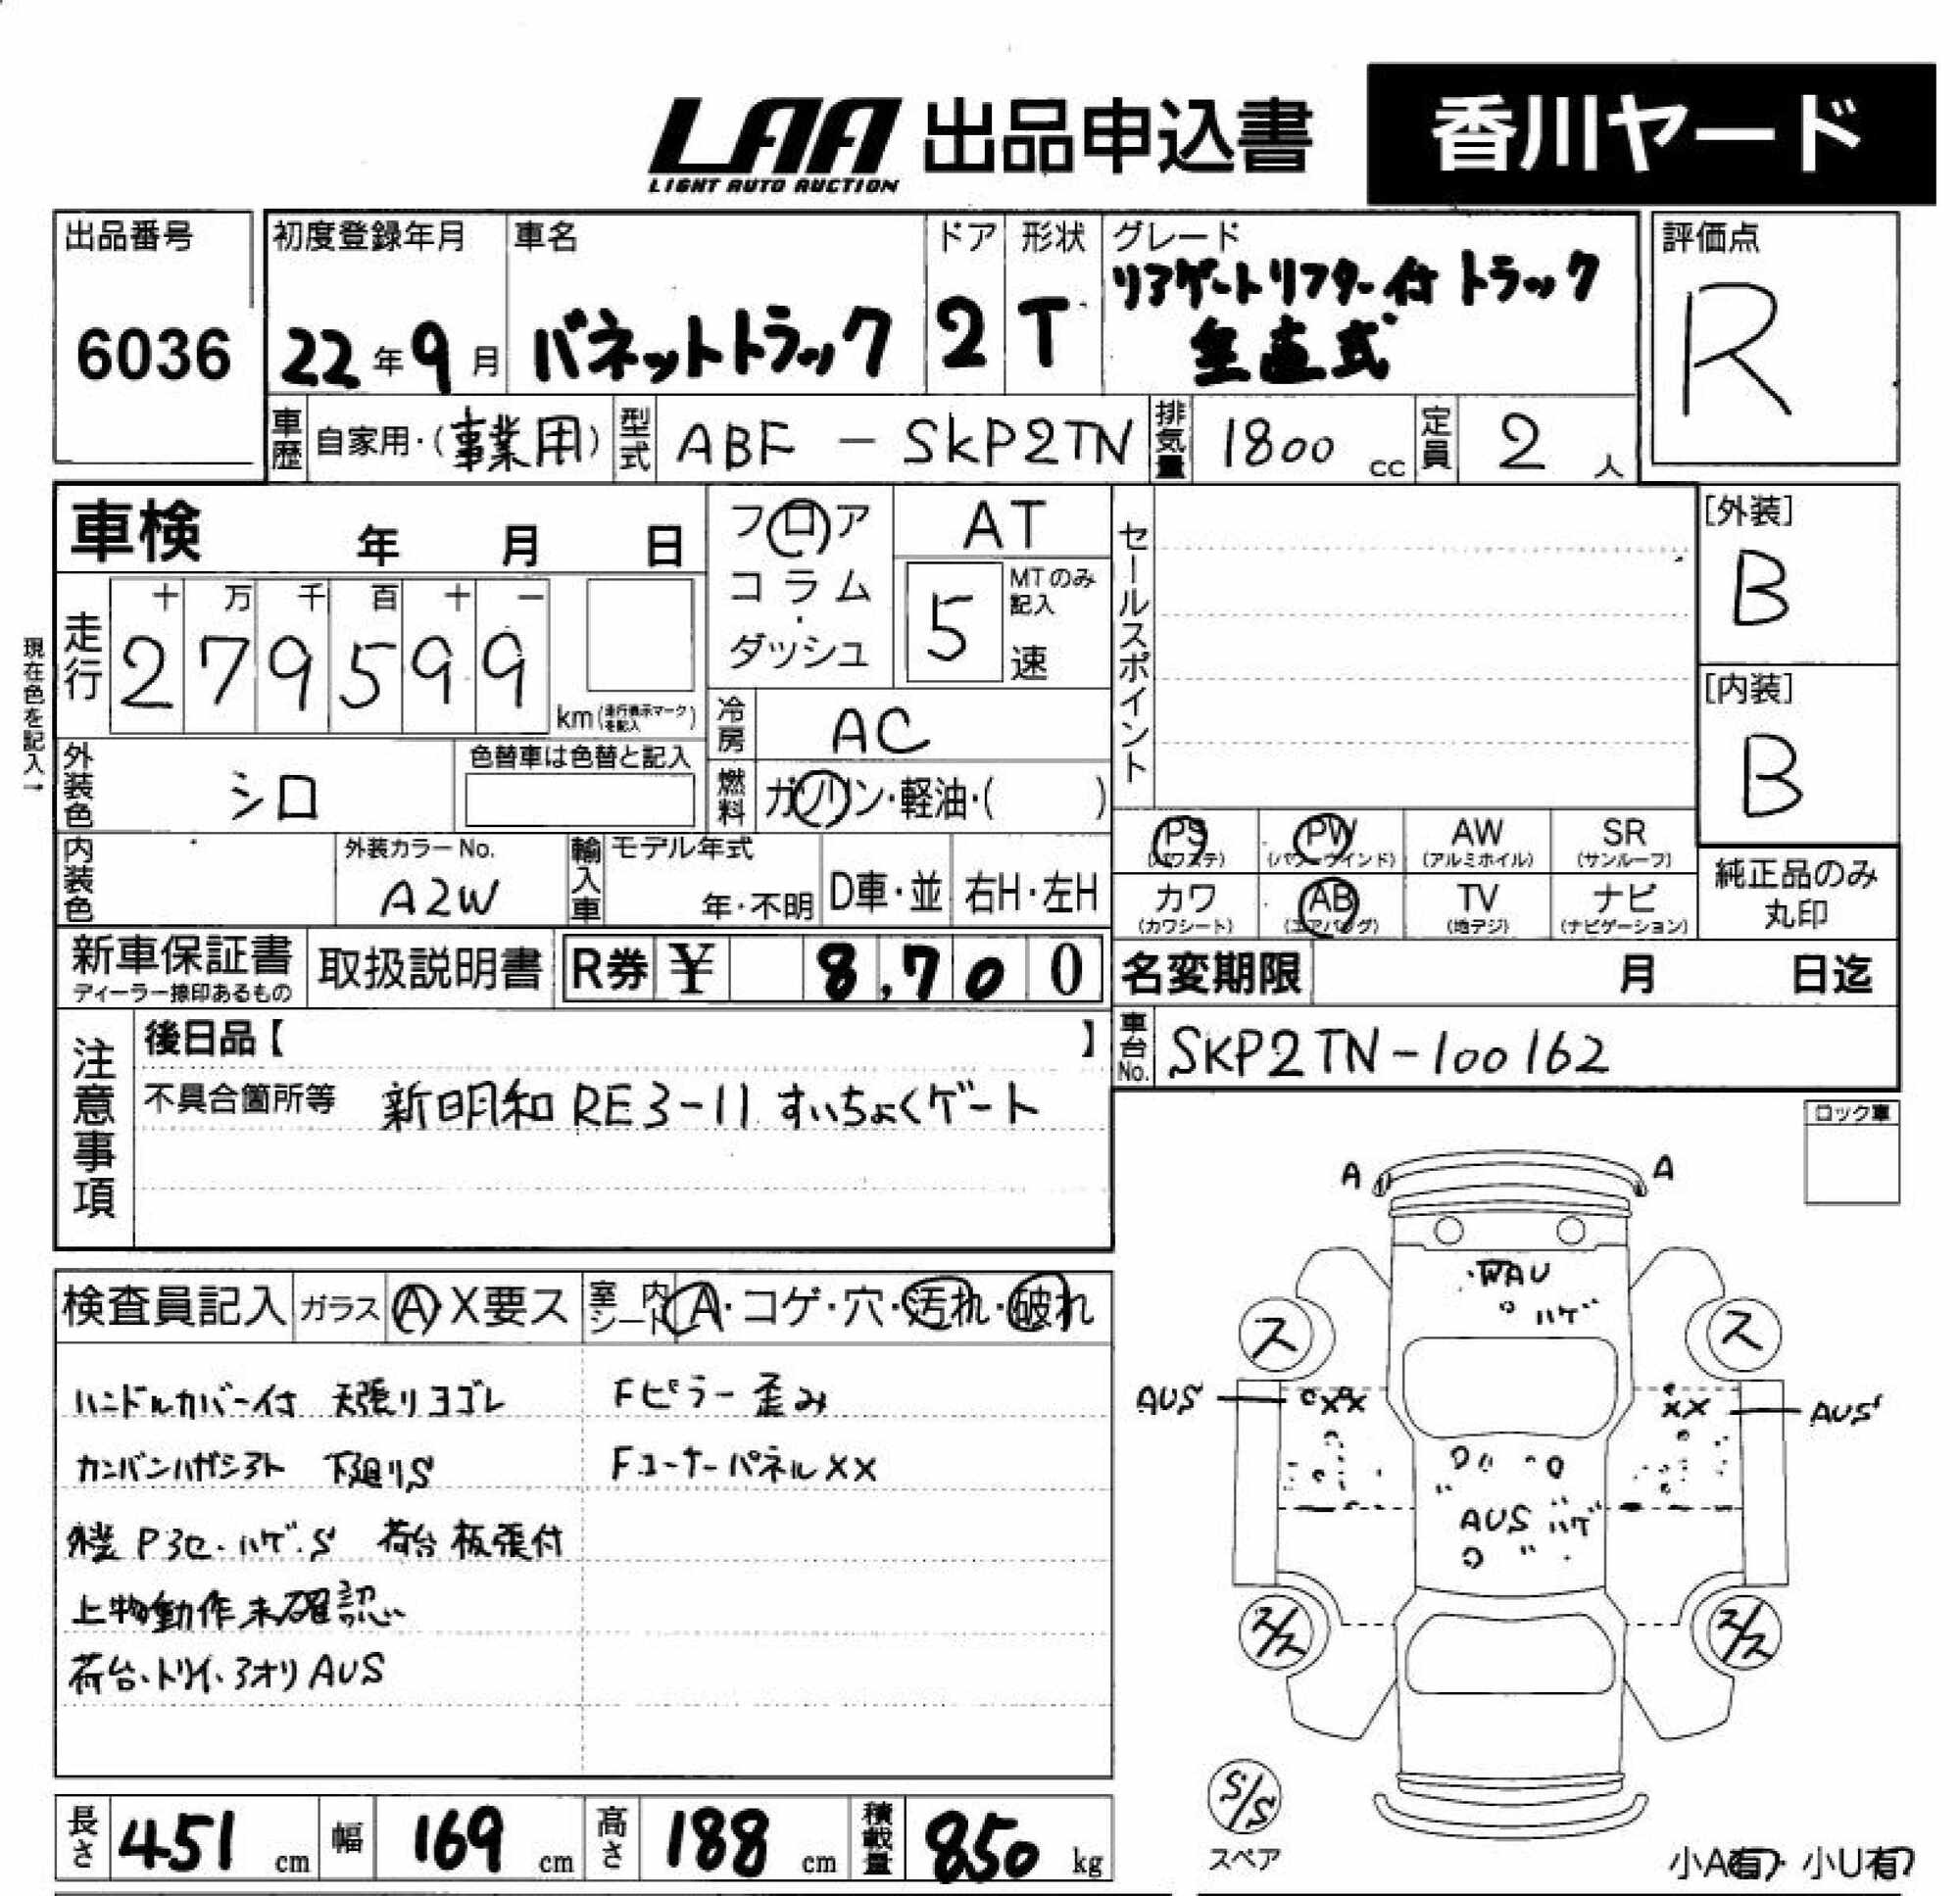 LAA 出品申込書 香川ヤード
LIGHT AUTO AUCTION
出品番号 初度登録年月 車名 ドア 形状 グレード 評価点
6036 22年9月 バネットトラック 2 T リアゲートリフター付トラック
垂直式 R
車歴 自家用・(事業用) 型式 ABF - SKP2TN 排気量 1800 cc 定員 2 人
車検 年 月 日 フロア AT セールスポイント [外装]
B
現在色を記入→
走行 十 万 千 百 十 一 コラム・ダッシュ 5 MTのみ記入 速
2 7 9 5 9 9 km(走行表示マークを記入) [内装]
B
冷房 AC
外装色 シロ 色替車は色替と記入 燃料 ガソリン・軽油・( )
PS (パワステ) PW (パワーウインド) AW (アルミホイル) SR (サンルーフ)
内装色 外装カラーNo. A2W 輸入車 モデル年式 年・不明 D車・並 右H・左H
カワ (カワシート) AB (エアバッグ) TV (地デジ) ナビ (ナビゲーション) 純正品のみ丸印
新車保証書 ディーラー捺印あるもの 取扱説明書 R券 ¥ 8,700 名変期限 月 日迄
車台No. SKP2TN-100162
注意事項 後日品【 】
不具合箇所等 新明和 RE3-11 すいちょくゲート
ロック車
A A
検査員記入 ガラス A X要ス 室内シート A・コゲ・穴・汚れ・破れ
ハンドルカバー付 天張りヨゴレ Fピラー歪み
カンバンハガシアト 下廻りS Fコーナーパネル XX
外装 Pヨセ・ハゲ・S 荷台板張付
上物動作未確認
荷台・トリイ・アオリ AUS
ハゲ
ス ス
AUS XX XX AUS
AUS ハゲ
ス/ス ス/ス
S/S
スペア
小A有 ・ 小U有
長さ 451 cm 幅 169 cm 高さ 188 cm 積載量 850 kg